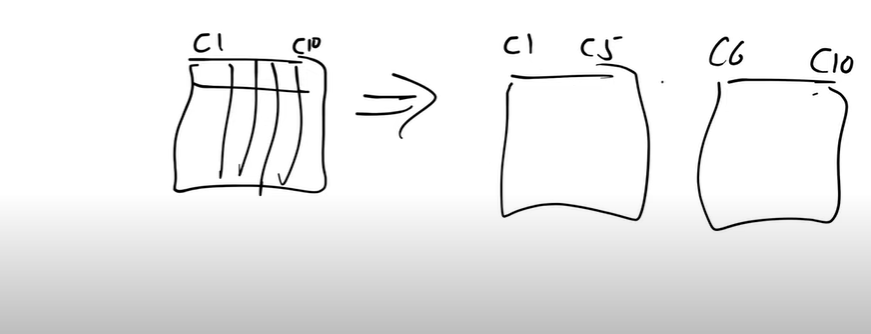 C1 C10
C1 C5
C6 C10